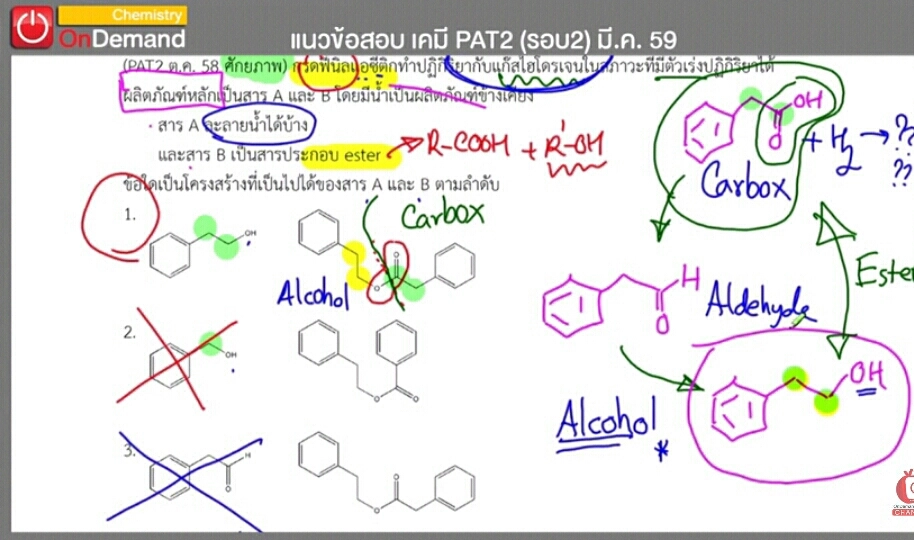 Chemistry
OnDemand
แนวข้อสอบ เคมี PAT2 (รอบ2) มี.ค. 59
(PAT2 ต.ค. 58 ศักยภาพ) กรดฟีนิลแอซีติกทำปฏิกิริยากับแก๊สไฮโดรเจนในสภาวะที่มีตัวเร่งปฏิกิริยาได้
ผลิตภัณฑ์หลักเป็นสาร A และ B โดยมีน้ำเป็นผลิตภัณฑ์ข้างเคียง
สาร A ละลายน้ำได้บ้าง
และสาร B เป็นสารประกอบ ester → R-COOH + R'-OH
ข้อใดเป็นโครงสร้างที่เป็นไปได้ของสาร A และ B ตามลำดับ
OH
O
Carbox
+ H2 → ?
??
1.
OH
O
O
Carbox
Alcohol
H
O
Aldehyde
Ester
2.
OH
O
O
Alcohol
*
OH
3.
H
O
O
O